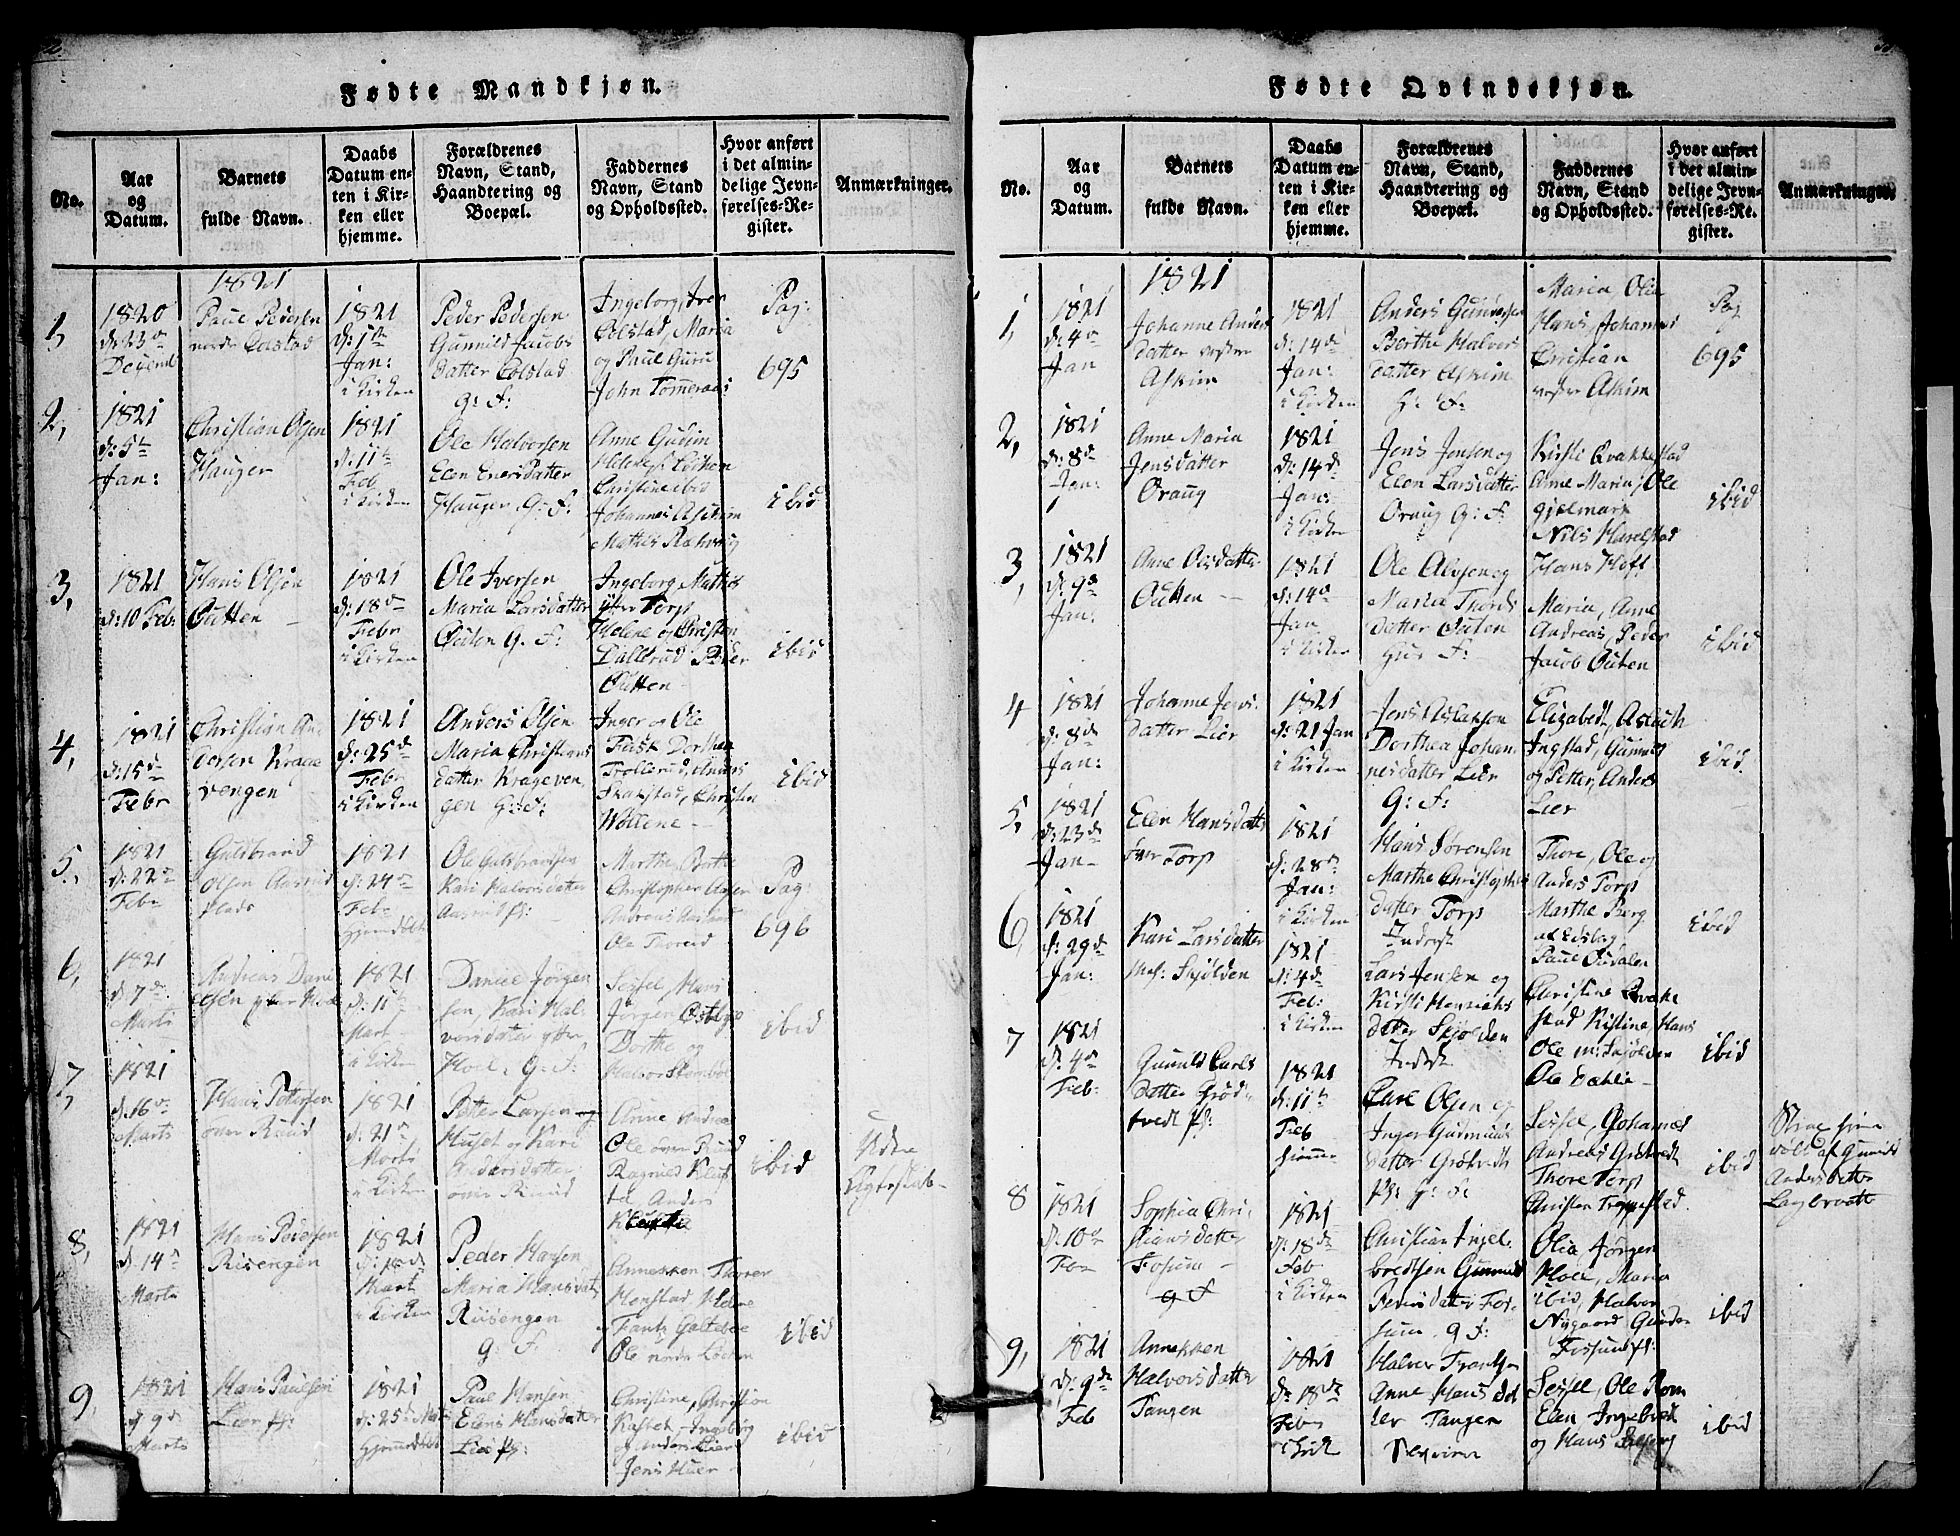 Fødte Mandkjøn.
No.
Aar
og
Datum.
Barnets
fulde Navn.
Daabs
Datum en-
ten i Kir-
ken eller
hjemme.
Forældrenes
Navn, Stand,
Haandtering og
Boepæl.
Faddernes
Navn, Stand
og Opholdssted.
Hvor anført
i det almin-
delige Jevn-
førelses-Re-
gister.
Anmærkninger.
1821
1,
1820
d: 23de
Decemb
Paul Pedersen
nordre Colstad
1821
d: 1te
Jan:
i Kirken
Peder Pedersen
Gunnild Jacobs
datter Colstad
G: F:
Ingeborg, Iver
Colstad, Maria
og Paul Guru
John Tømmeraas
Pag:
695
2,
1821
d: 5te
Jan:
Christian Olsen
Hauger
1821
d: 11te
Feb
i Kirken
Ole Halvorsen
Elen EnersDatter
Hauger G: F:
Anne Gudim
Christine ibid
Johannes Askim
Mathis
ibid
3,
1821
d: 10 Feb:
Hans Olsen
Outten
1821
d: 18de
Febr
i Kirken
Ole Iversen
Maria Larsdatter
Outen G: F:
Ingeborg, Mathis
Ytter Torp
Helene og Christen
Dallerud Peder
Outten
ibid
4,
1821
d: 15de
Febr
Christian An
dersen Krage
vengen
1821
d: 25de
Febr
i Kirken
Anders Olsen
Maria Christians
datter Krageven
gen G: F:
Inger og Ole
Fusk Dorthea
Trollerud, Anders
Frakstad, Christen
Wollene
ibid
5.,
1821
d: 22de
Febr
Guldbrand
Olsen Aasrud
plads
1821
d: 24de
Feb
Hjemdøbt
Ole Guldbrandsen
Kari Halvorsdatter
Aasrud pl:
Marthe, Berthe
Christopher
Andreas
Ole Thorud
Pag:
696
6,
1821
d: 7de
Marts
Andreas Dani
elsen ytter Hoel
1821
d: 11te
Mart
i Kirken
Daniel Jørgen
sen, Kari Hal
vorsdatter ytter
Hoel, G: F:
Sissel, Mari
Jørgen Østbye
Dorthe og
Halvor
ibid
7,
1821
d: 16de
Marts
Hans Pettersen
over Ruud
1821
d: 21de
Marts
i Kirken
Petter Larsen og
Huset og Kari
Andersdatter
over Ruud
Anne Andrea
Ole over Ruud
Ragnild
Anders
ibid
Uden
Egteskab
8,
1821
d. 14de
Marts
Hans Pedersen
Risengen
1821
d: 18de
Mart
i Kirken
Peder Hansen
Maria Hansdat
Riisengen
G: F:
Annekken Thorer
Henstad, Helene
Frantz Galtebøe
Ole nordre Løcken
ibid
9,
1821
d 9de
Marts
Hans Paulsen
Lier pl:
1821
d: 25de Mart
Hjemdøbt
Paul Hansen
Eleni Hansdatter
Lier pl:
Christine, Christian
Kastet, Ingeborg
og Anders Lier
Jens Huer
ibid
Fødte Qvindekjøn.
No.
Aar
og
Datum.
Barnets
fulde Navn.
Daabs
Datum en-
ten i Kir-
ken eller
hjemme.
Forældrenes
Navn, Stand,
Haandtering og
Boepæl.
Faddernes
Navn, Stand
og Opholdssted.
Hvor anført
i det almin-
delige Jevn-
førelses-Re-
gister.
Anmærkninger.
1821
1,
1821
d: 4de
Jan
Johanne Anders
datter vestre
Askim
1821
d: 14de
Jan:
i Kirken
Anders Gundersen
Berthe Halvors
datter Askim
G: F:
Maria, Olia
Hans, Johannes
Christian
vestre Askim
Pag
695
2,
1821
d: 8de
Jan:
Anne Maria
Jensdatter
Oraug
1821
d: 14de
Jan:
i Kirken
Jens Jensen og
Elen Larsdatter
Oraug G: F:
Kirsti Qvakkestad
Anne Maria, Ole
Gjelmark
Nils Harelstad
ibid
3,
1821
d: 9de
Jan:
Anne Olsdatter
Outten
1821
d: 14de
Jan
i Kirken
Ole Alvsen og
Maria Thords
datter Outen
Huus F:
Hans Hoff
Maria, Anne
Andreas, Peder
Jacob Outen
ibid
4
1821
d: 8de
Jan:
Johanne Jens
datter Lier
1821
d: 21 Jan
i Kirken
Jens Aslaksen
Dorthea Johan
nesdatter Lier
G: F:
Elizabeth, Aslach
Ingstad, Gunner
og Petter, Anders
Lier
ibid.
5,
1821
d: 23de
Jan
Elen Hansdatter
Torp
1821
d: 28de
Jan:
i Kirken
Hans Sørensen
Marthe Christophers
datter Torp
Inderst
Thore, Ole og
Anders Torp
Marthe Berg
af Edsberg
Paul Oudalen
ibid
6,
1821
d: 29de
Jan:
Kari Larsdatter
Skjølden
1821
d: 4de
Feb:
i Kirken
Lars Jensen og
Kirsti Henrichs
datter Skjølden
Inderst
Christine Qvake
stad Kistine, Hans
Ole m: Skjølden
Ole Dahlie
ibid
7
1821
d: 4de
Feb:
Gunild Carls
datter Grød
tvedt pl:
1821
d: 11te
Feb
hjemme
Carl Olsen og
Inger Gudmunds
datter Grøtvedt
pl: G: F:
Sissel, Johannes
Andreas Grøtvedt
Thore Torp
Christen Trømstad
ibid
8
1821
d: 10de
Feb
Sophia Chri
stiansdatter
Fosum
g F
1821
d: 18de
Feb
i Kirken
Christian Ingel
bretsen Gunnild
Pedersdatter Fos
sum. g F:
Olia, Jørgen
Hoel, Maria
ibid, Halvor
Nygaard, Gunder
Fossum pl:
ibid
9,
1821
d: 9de
Feb
Annekken
Halvorsdatter
Tangen
1821
d: 18de
Feb
i Kirk
Halvor Frantsen
Anne Hans dat
ter Tangen
Sissel, Ole Rom
Elen Ingebret
og Hans
ibid